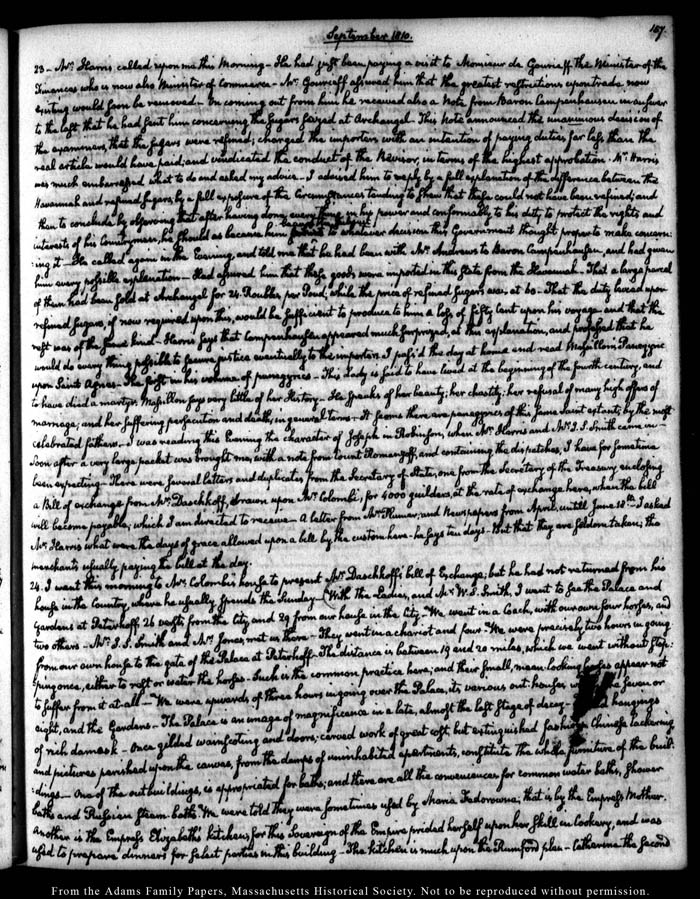 September 1810.
157.
23- Mr. Harris called upon me this Morning- He had just been paying a visit to Monsieur de Gourieff the Minister of the
Finances who is now also Minister of Commerce- Mr. Gourieff assured him that the greatest restrictions upon trade now
existing would soon be removed- On coming out from him he received also a Note from Baron Campenhausen in answer
to the last that he had sent him concerning the Sugars seized at Archangel- This Note announced the unanimous decision of
the examiners, that the sugars were refined; charged the importers with an intention of paying duties far less than the
real article would have paid; and vindicated the conduct of the Revisor, in terms of the highest approbation. Mr. Harris
was much embarrassed what to do and asked my advice- I advised him to reply by a full explanation of the difference between the
Havannah and refined sugars, by a full exposure of the circumstances tending to shew that these could not have been refined; and
then to conclude by observing that after having done every thing in his power and conformably to his duty to protect the rights and
interests of his Countrymen, he should as became him to whatever decision this Government thought proper to make concern-
ing it- He called again in the Evening, and told me that he had been with Mr. Andrews to Baron Campenhausen, and had given
him every possible explanation- Had assured him that these goods were imported in this state from the Havannah- That a large parcel
of them had been sold at Archangel for 24 Roubles per Poud, while the price of refined sugars was, at 60- That the duty levied upon
refined sugars, if now required upon this, would be sufficient to produce to him a loss of fifty Cent upon his voyage- and that the
rest was of the same kind- Harris says that Campenhausen appeared much surprized, at this explanation, and professed that he
would do every thing possible to secure justice eventually to the importers. I pass'd the day at home and read Massillon's Panegyric
upon Saint Agnes- The first in his volume of panegyrics- This Lady is said to have lived at the beginning of the fourth century, and
to have died a martyr. Massillon says very little of her History- He speaks of her beauty; her chastity; her refusal of many high offers of
marriage; and her suffering persecution and death, in general terms- It seems there are panegyrics of this same Saint extant, by the most
celebrated fathers- I was reading this Evening the character of Joseph in Robinson, when Mr. Harris and Mr. J. S. Smith came in-
Soon after a very large packet was brought me, with a note from Count Romanzoff, and containing the dispatches, I have for sometime
been expecting- There were several letters and duplicates from the Secretary of State, one from the Secretary of the Treasury enclosing
a Bill of exchange from Mr. Daschkoff, drawn upon Mr. Colombi, for 4000 guilders, at the rate of exchange here, when the bill
will become payable; which I am directed to receive- A letter from Mr. and Newspapers from April, untill June 18th. I asked
Mr. Harris what were the days of grace allowed upon a bill by the custom here- he says ten days- But that they are seldom taken; the
merchants usually paying the bill at the day.
24. I went this morning to Mr. Colombi's house to present Mr. Daschkoff's bill of Exchange; but he had not returned from his
house in the Country, where he usually spends the Sunday- With the Ladies, and Mr. W. S. Smith, I went to see the Palace and
Gardens at Peterhoff, 26 versts from the City and 29 from our house in the City- We went in a Coach, with our own four horses, and
two others- Mr. J. S. Smith and Mr. Jones, met us there- They went in a chariot and four- We were precisely two hours in going
from our own house to the gate of the Palace at Peterhoff- The distance is between 19 and 20 miles, which we went without stop-
ping once, either to rest or water the horses- Such is the common practice here; and their small, mean looking horses appear not
to suffer from it at all- We were upwards of three hours in going over the Palace, its various out-houses seven or
eight, and the Gardens- The Palace is an image of magnificence in a late, almost the last stage of decay- hangings
of rich damask- Once gilded wainscoting and doors; carved work of great cost, but extinguished fashion- Chinese lackering
and pictures perished upon the canvas, from the damps of uninhabited apartments, constitute the whole furniture of the buil-
dings- One of the out buildings, is appropriated for baths; and there are all the conveniences for common water baths, Shower
baths and Russian Steam baths. We were told they were sometimes used by Maria Fedorowna; that is by the Empress Mother.
Another is the Empress Elizabeth's kitchen; for this Sovereign of the Empire prided herself upon her skill in Cookery, and was
used to prepare dinners for select parties in this building- The kitchen is much upon the Rumford plan- Catherine the Second
From the Adams Family Papers, Massachusetts Historical Society. Not to be reproduced without permission.